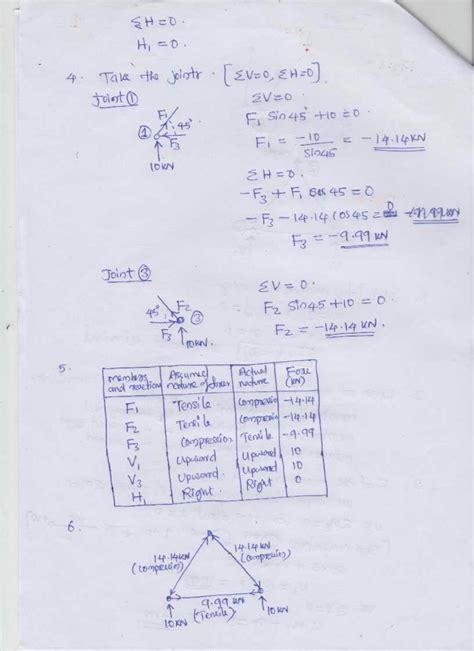 ΣH=0.
H₁ = 0.
4. Take the joints. [ΣV=0, ΣH=0]
Joint ①
F₁
45°
①
F₃
10KN
ΣV=0.
F₁ Sin45° +10 = 0.
F₁ = -10/Sin45 = -14.14KN
ΣH=0.
-F₃ + F₁ cos 45 = 0
-F₃ -14.14 cos 45 = 0
F₃ = -9.99 KN
Joint ③
45°
F₂
③
F₃
10KN.
ΣV = 0.
F₂ Sin45 +10 = 0.
F₂ = -14.14 KN.
5.
members and reaction | Assumed nature of force | Actual nature | Force (KN)
F₁ | Tensile | compression | -14.14
F₂ | Tensile | compression | -14.14
F₃ | compression | Tensile | -9.99
V₁ | Upward | Upward | 10
V₃ | Upward | Upward | 10
H₁ | Right. | Right | 0
6.
14.14KN (compression)
14.14 KN (compression)
9.99 KN
(Tensile)
10KN
10KN